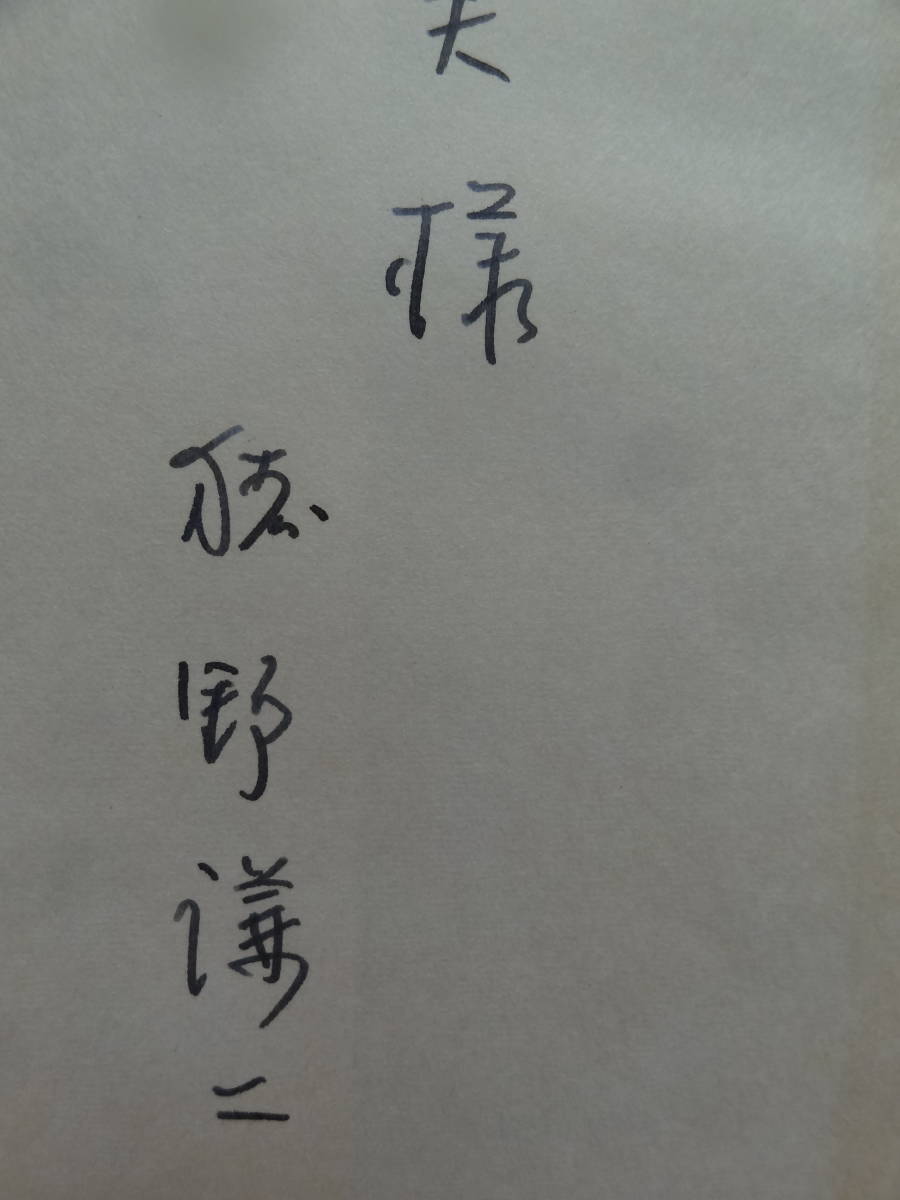 夫様
猪野謙二